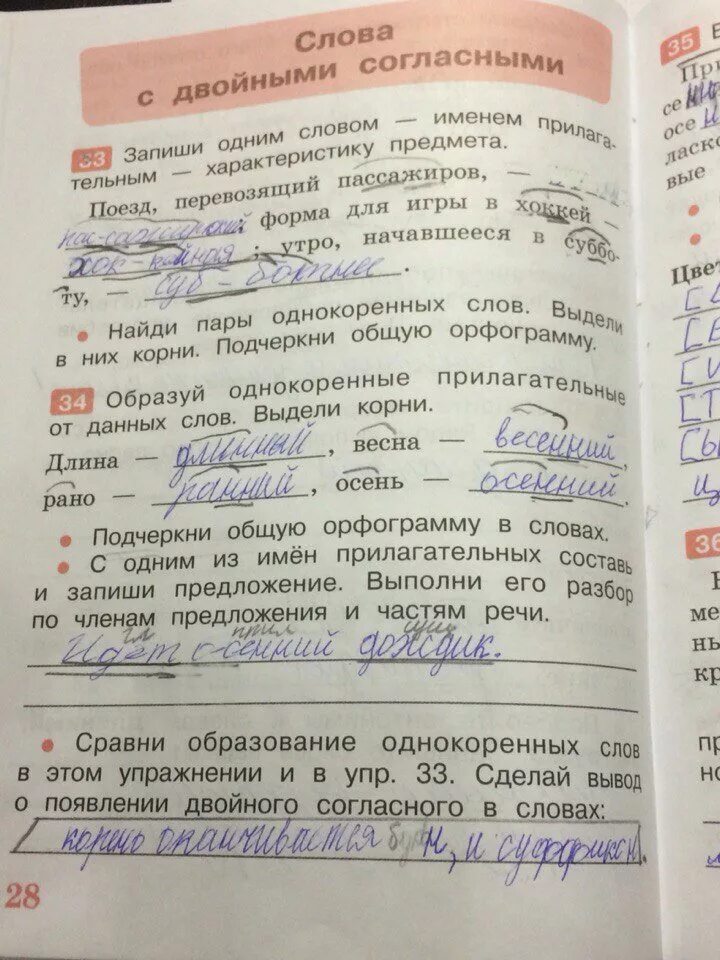 Слова
с двойными согласными
33 Запиши одним словом — именем прилага-
тельным — характеристику предмета.
Поезд, перевозящий пассажиров, —
пас-сажирский форма для игры в хоккей —
хок-кейная ; утро, начавшееся в суббо-
ту, — суб-ботнее .
• Найди пары однокоренных слов. Выдели
в них корни. Подчеркни общую орфограмму.
34 Образуй однокоренные прилагательные
от данных слов. Выдели корни.
Длина — длинный , весна — весенний ,
рано — ранний , осень — осенний .
• Подчеркни общую орфограмму в словах.
• С одним из имён прилагательных составь
и запиши предложение. Выполни его разбор
по членам предложения и частям речи.
гл прил сущ
Идёт осенний дождик.
• Сравни образование однокоренных слов
в этом упражнении и в упр. 33. Сделай вывод
о появлении двойного согласного в словах:
корень оканчивается н, и суффикс н.
28
35
При
се
осе
ласко
вые
•
•
Цвет
СА
СЕ
СИ
СТ
СЫ
Ц
36
ме
ны
кр
пр
но